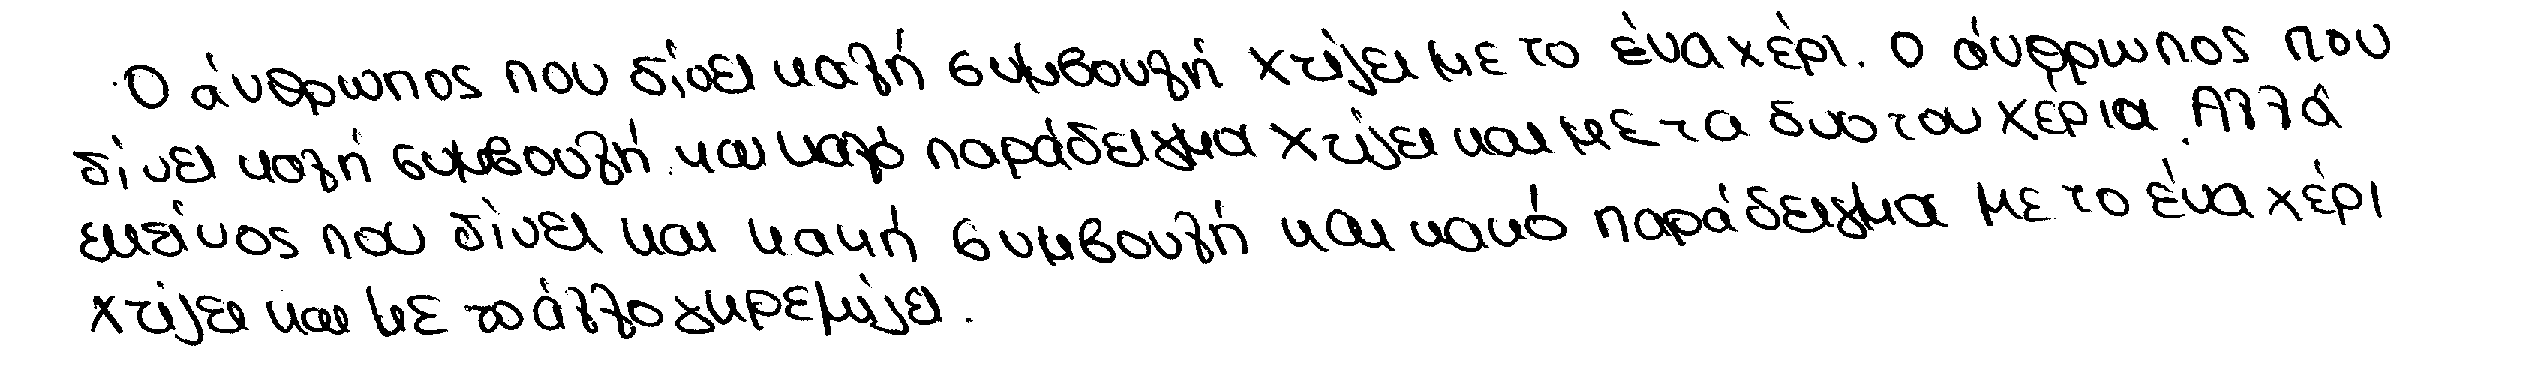 Ο άνθρωπος που δίνει καλή συμβουλή χτίζει με το ένα χέρι. Ο άνθρωπος που
δίνει καλή συμβουλή και καλό παράδειγμα χτίζει και με τα δυο του χέρια. Αλλά
εκείνος που δίνει και κακή συμβουλή και κακό παράδειγμα με το ένα χέρι
χτίζει και με το άλλο γκρεμίζει.